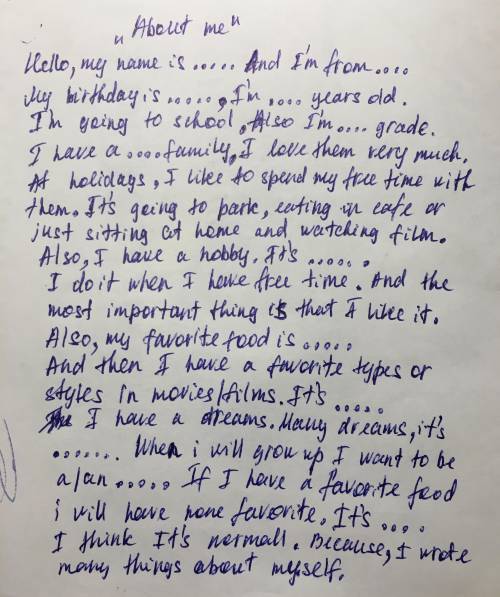 „About me"
Hello, my name is ..... And I'm from ....
My birthday is ....., I'm .... years old.
I'm going to school, Also I'm .... grade.
I have a .... family, I love them very much.
At holidays, I like to spend my free time with
them. It's going to park, eating in cafe or
just sitting at home and watching film.
Also, I have a hobby. It's ......
I do it when I have free time. And the
most important thing is that I like it.
Also, my favorite food is .....
And then I have a favorite types or
styles in movies/films. It's .....
I have a dreams. Many dreams, it's
....... When i will grow up I want to be
a/an ..... If I have a favorite food
i will have none favorite. It's ....
I think It's normall. Because, I wrote
many things about myself.